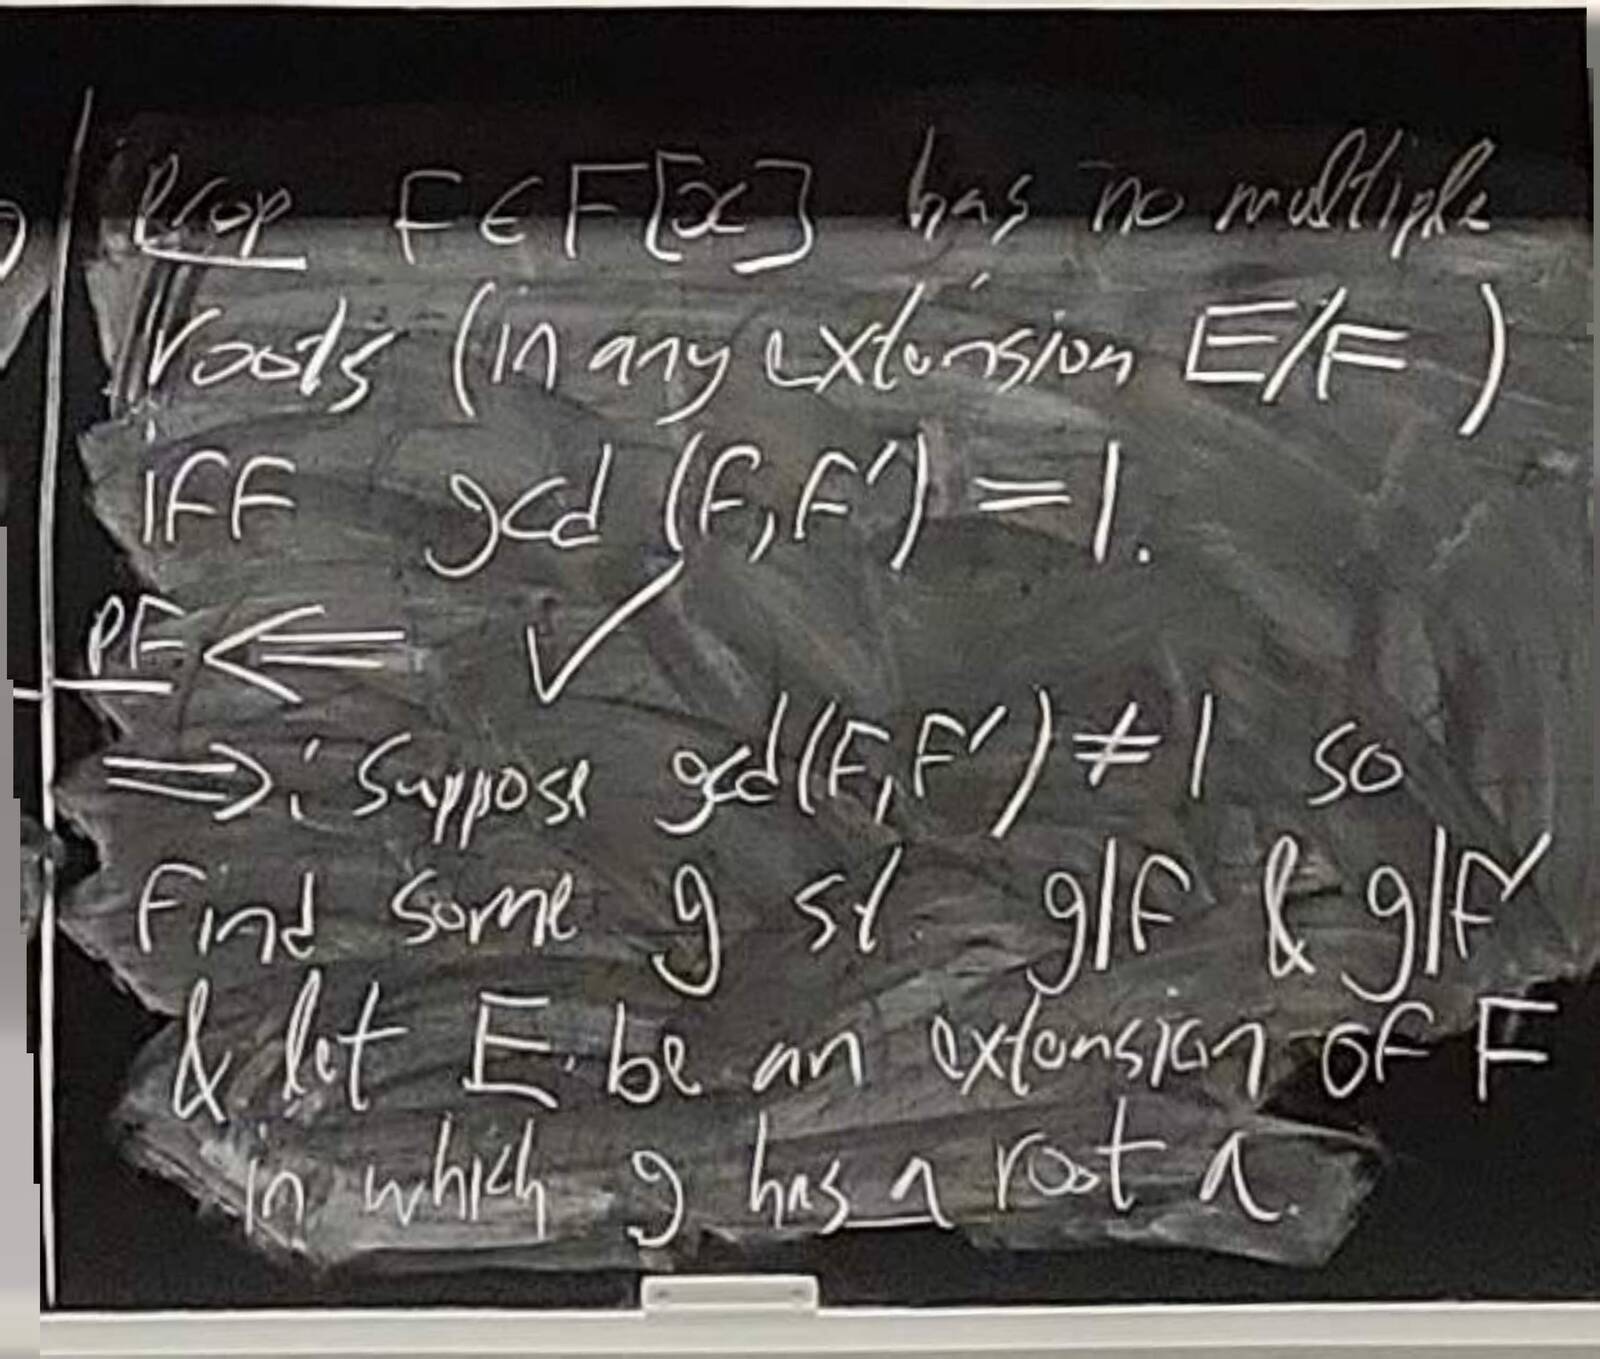 Prop f ∈ F[x] has no multiple
roots (in any extension E/F)
iff gcd (f, f') = 1.
Pf ⇐ ✓
⇒: Suppose gcd(f, f') ≠ 1 so
find some g st. g|f & g|f'
& let E be an extension of F
in which g has a root a.